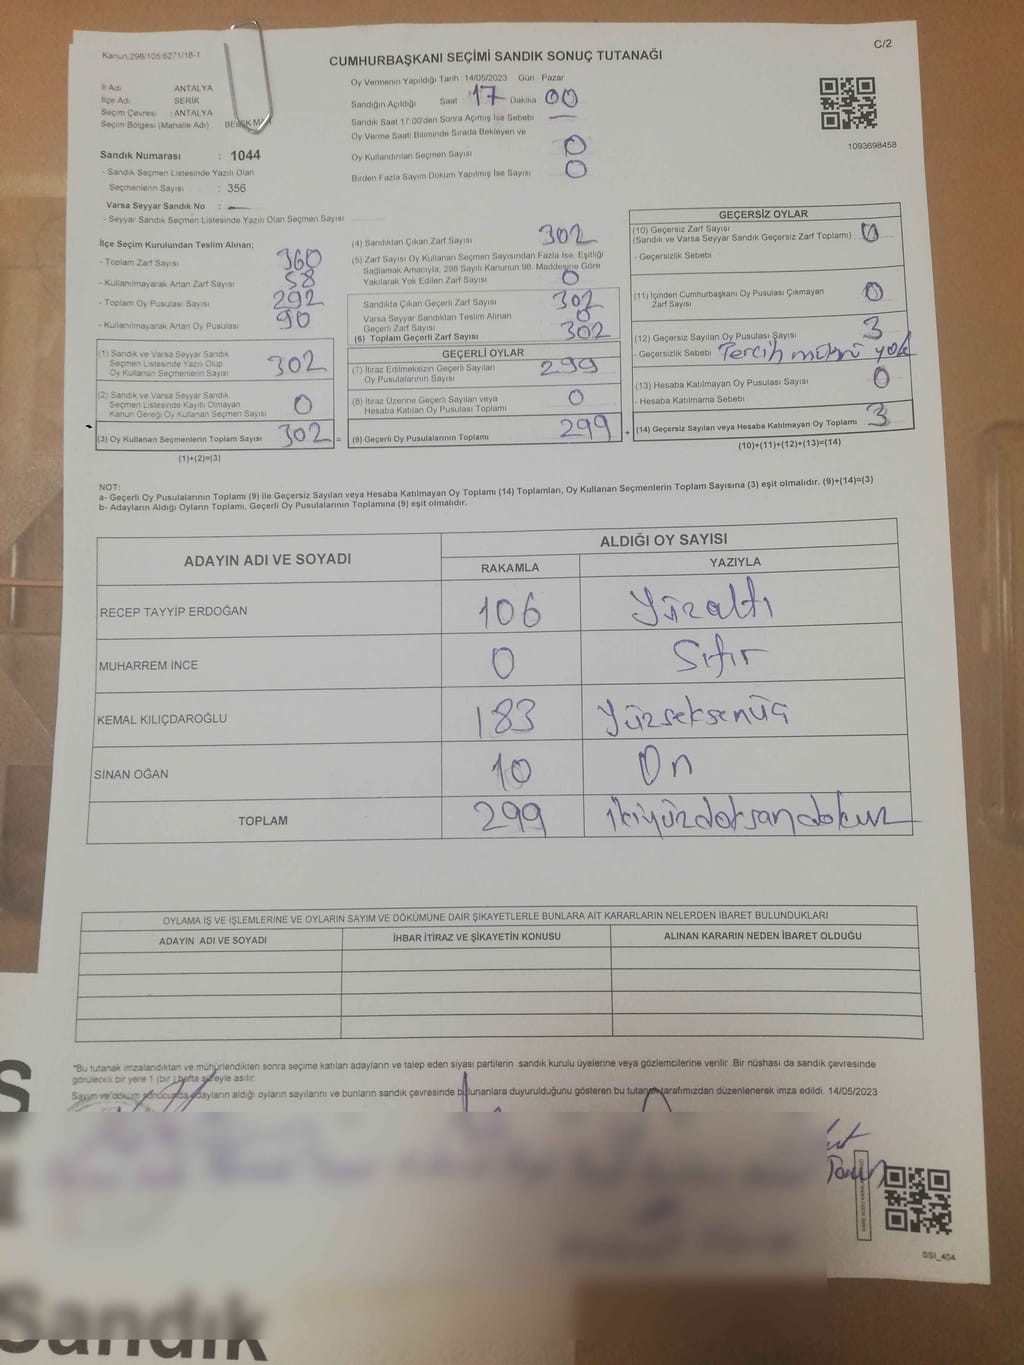 Kanun 298/105 6271/18-1
C/2
CUMHURBAŞKANI SEÇİMİ SANDIK SONUÇ TUTANAĞI
İl Adı ANTALYA
İlçe Adı SERİK
Seçim Çevresi : ANTALYA
Seçim Bölgesi (Mahalle Adı)
Sandık Numarası : 1044
- Sandık Seçmen Listesinde Yazılı Olan
Seçmenlerin Sayısı : 356
Varsa Seyyar Sandık No : —
- Seyyar Sandık Seçmen Listesinde Yazılı Olan Seçmen Sayısı
Oy Vermenin Yapıldığı Tarih :14/05/2023 Gün Pazar
Sandığın Açıldığı Saat 17 Dakika 00
Sandık Saat 17:00'den Sonra Açılmış İse Sebebi —
Oy Verme Saati Bitiminde Sırada Bekleyen ve
Oy Kullandırılan Seçmen Sayısı 0
Birden Fazla Sayım Döküm Yapılmış İse Sayısı 0
1093698458
İlçe Seçim Kurulundan Teslim Alınan;
- Toplam Zarf Sayısı 360
- Kullanılmayarak Artan Zarf Sayısı 58
- Toplam Oy Pusulası Sayısı 292
- Kullanılmayarak Artan Oy Pusulası 90
(1) Sandık ve Varsa Seyyar Sandık
Seçmen Listesinde Yazılı Olup
Oy Kullanan Seçmenlerin Sayısı 302
(2) Sandık ve Varsa Seyyar Sandık
Seçmen Listesinde Kayıtlı Olmayan
Kanun Gereği Oy Kullanan Seçmen Sayısı 0
(3) Oy Kullanan Seçmenlerin Toplam Sayısı 302 =
(1)+(2)=(3)
(4) Sandıktan Çıkan Zarf Sayısı 302
(5) Zarf Sayısı Oy Kullanan Seçmen Sayısından Fazla İse, Eşitliği
Sağlamak Amacıyla, 298 Sayılı Kanunun 98. Maddesine Göre
Yakılarak Yok Edilen Zarf Sayısı 0
Sandıkta Çıkan Geçerli Zarf Sayısı 302
Varsa Seyyar Sandıktan Teslim Alınan
Geçerli Zarf Sayısı 0
(6) Toplam Geçerli Zarf Sayısı 302
GEÇERLİ OYLAR
(7) İtiraz Edilmeksizin Geçerli Sayılan
Oy Pusulalarının Sayısı 299
(8) İtiraz Üzerine Geçerli Sayılan veya
Hesaba Katılan Oy Pusulası Toplamı 0
(9) Geçerli Oy Pusulalarının Toplamı 299 +
GEÇERSİZ OYLAR
(10) Geçersiz Zarf Sayısı
(Sandık ve Varsa Seyyar Sandık Geçersiz Zarf Toplamı) 0
- Geçersizlik Sebebi
(11) İçinden Cumhurbaşkanı Oy Pusulası Çıkmayan
Zarf Sayısı 0
(12) Geçersiz Sayılan Oy Pusulası Sayısı 3
- Geçersizlik Sebebi Tercih mührü yok
(13) Hesaba Katılmayan Oy Pusulası Sayısı 0
- Hesaba Katılmama Sebebi
(14) Geçersiz Sayılan veya Hesaba Katılmayan Oy Toplamı 3
(10)+(11)+(12)+(13)=(14)
NOT:
a- Geçerli Oy Pusulalarının Toplamı (9) ile Geçersiz Sayılan veya Hesaba Katılmayan Oy Toplamı (14) Toplamları, Oy Kullanan Seçmenlerin Toplam Sayısına (3) eşit olmalıdır. (9)+(14)=(3)
b- Adayların Aldığı Oyların Toplamı, Geçerli Oy Pusulalarının Toplamına (9) eşit olmalıdır.
ADAYIN ADI VE SOYADI
ALDIĞI OY SAYISI
RAKAMLA YAZIYLA
RECEP TAYYİP ERDOĞAN 106 Yüzaltı
MUHARREM İNCE 0 Sıfır
KEMAL KILIÇDAROĞLU 183 Yüzseksenüç
SİNAN OĞAN 10 On
TOPLAM 299 ikiyüzdoksandokuz
OYLAMA İŞ VE İŞLEMLERİNE VE OYLARIN SAYIM VE DÖKÜMÜNE DAİR ŞİKAYETLERLE BUNLARA AİT KARARLARIN NELERDEN İBARET BULUNDUKLARI
ADAYIN ADI VE SOYADI İHBAR İTİRAZ VE ŞİKAYETİN KONUSU ALINAN KARARIN NEDEN İBARET OLDUĞU
*Bu tutanak imzalandıktan ve mühürlendikten sonra seçime katılan adayların ve talep eden siyasi partilerin sandık kurulu üyelerine veya gözlemcilerine verilir .Bir nüshası da sandık çevresinde
görülecek bir yere 1 (bir ) hafta süreyle asılır.
Sayım ve döküm sonucunda adayların aldığı oyların sayılarını ve bunların sandık çevresinde bulunanlara duyurulduğunu gösteren bu tutanak tarafımızdan düzenlenerek imza edildi. 14/05/2023
SSI_404
Sandık